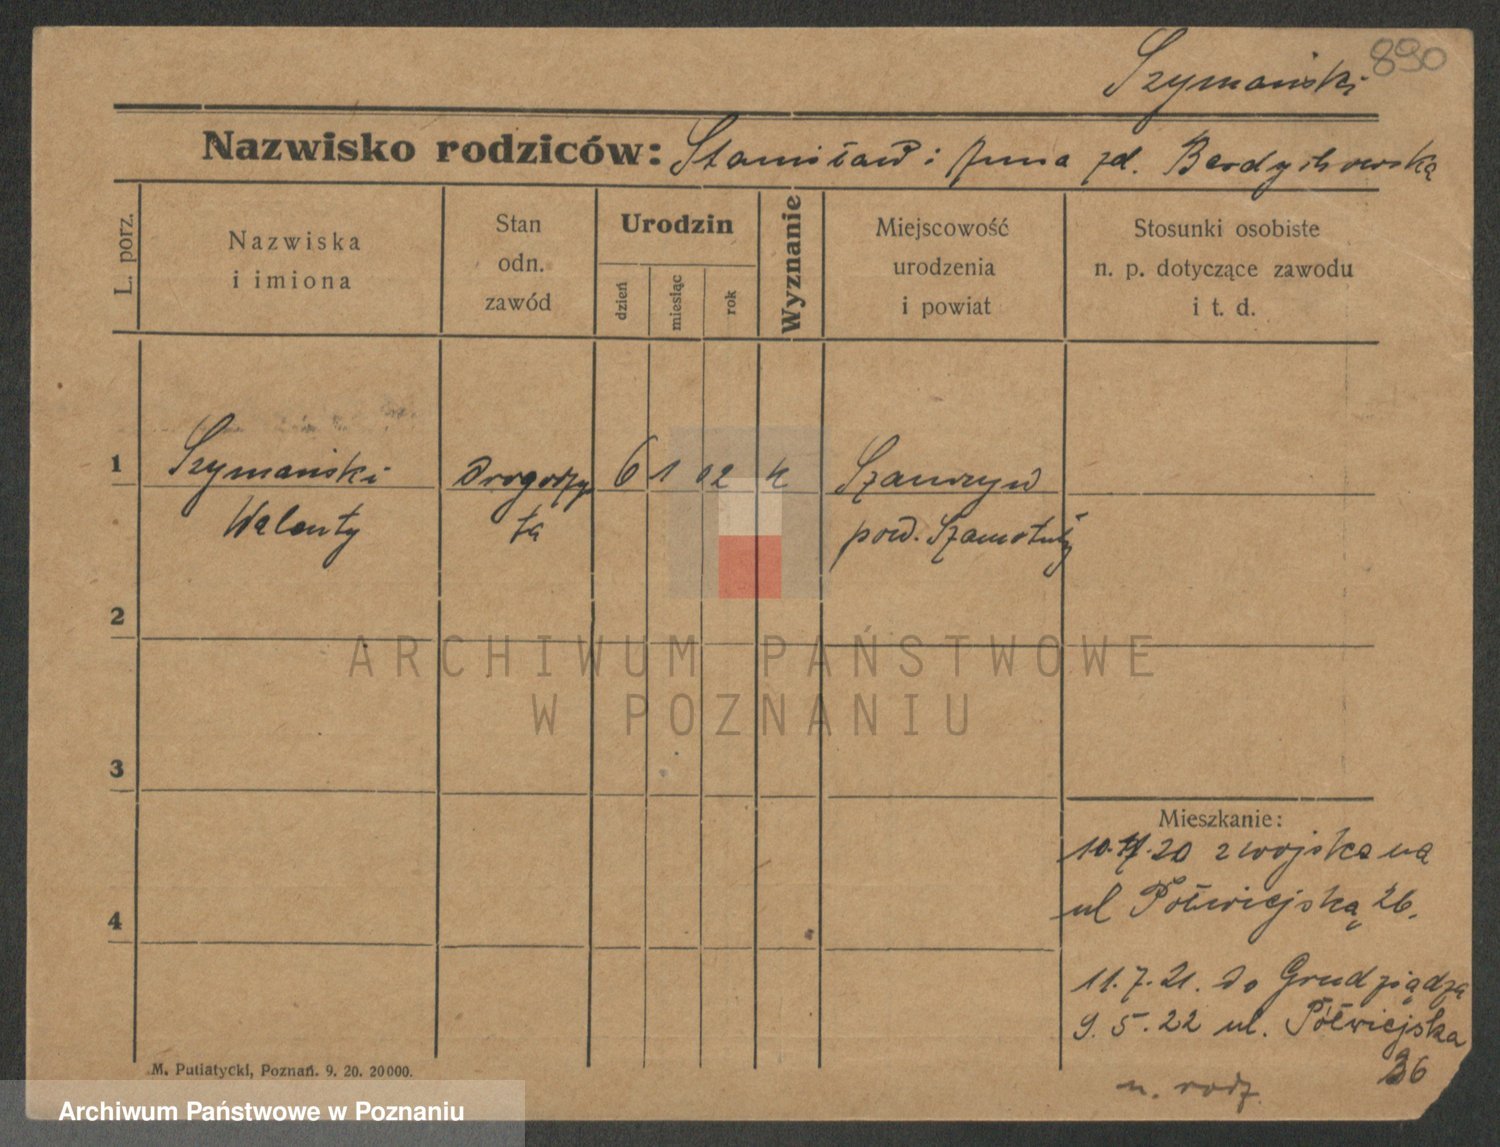 890
Szymański
Nazwisko rodziców: Stanisław i Anna zd. Berdychowska
L. porz.
Nazwiska
i imiona
Stan
odn.
zawód
Urodzin
dzień
miesiąc
rok
Wyznanie
Miejscowość
urodzenia
i powiat
Stosunki osobiste
n. p. dotyczące zawodu
i t. d.
1 Szymański Drogorzy 6 1 02 k
Walenty pow. Szamotuły
2
3
4
Mieszkanie:
20 z wojska na
ul Półwiejską 26.
11.7.21. do Grudziądza
9.5.22 ul. Półwiejska
36
n. rodz.
M. Putiatycki, Poznań. 9. 20. 20000.
ARCHIWUM PAŃSTWOWE
W POZNANIU
Archiwum Państwowe w Poznaniu